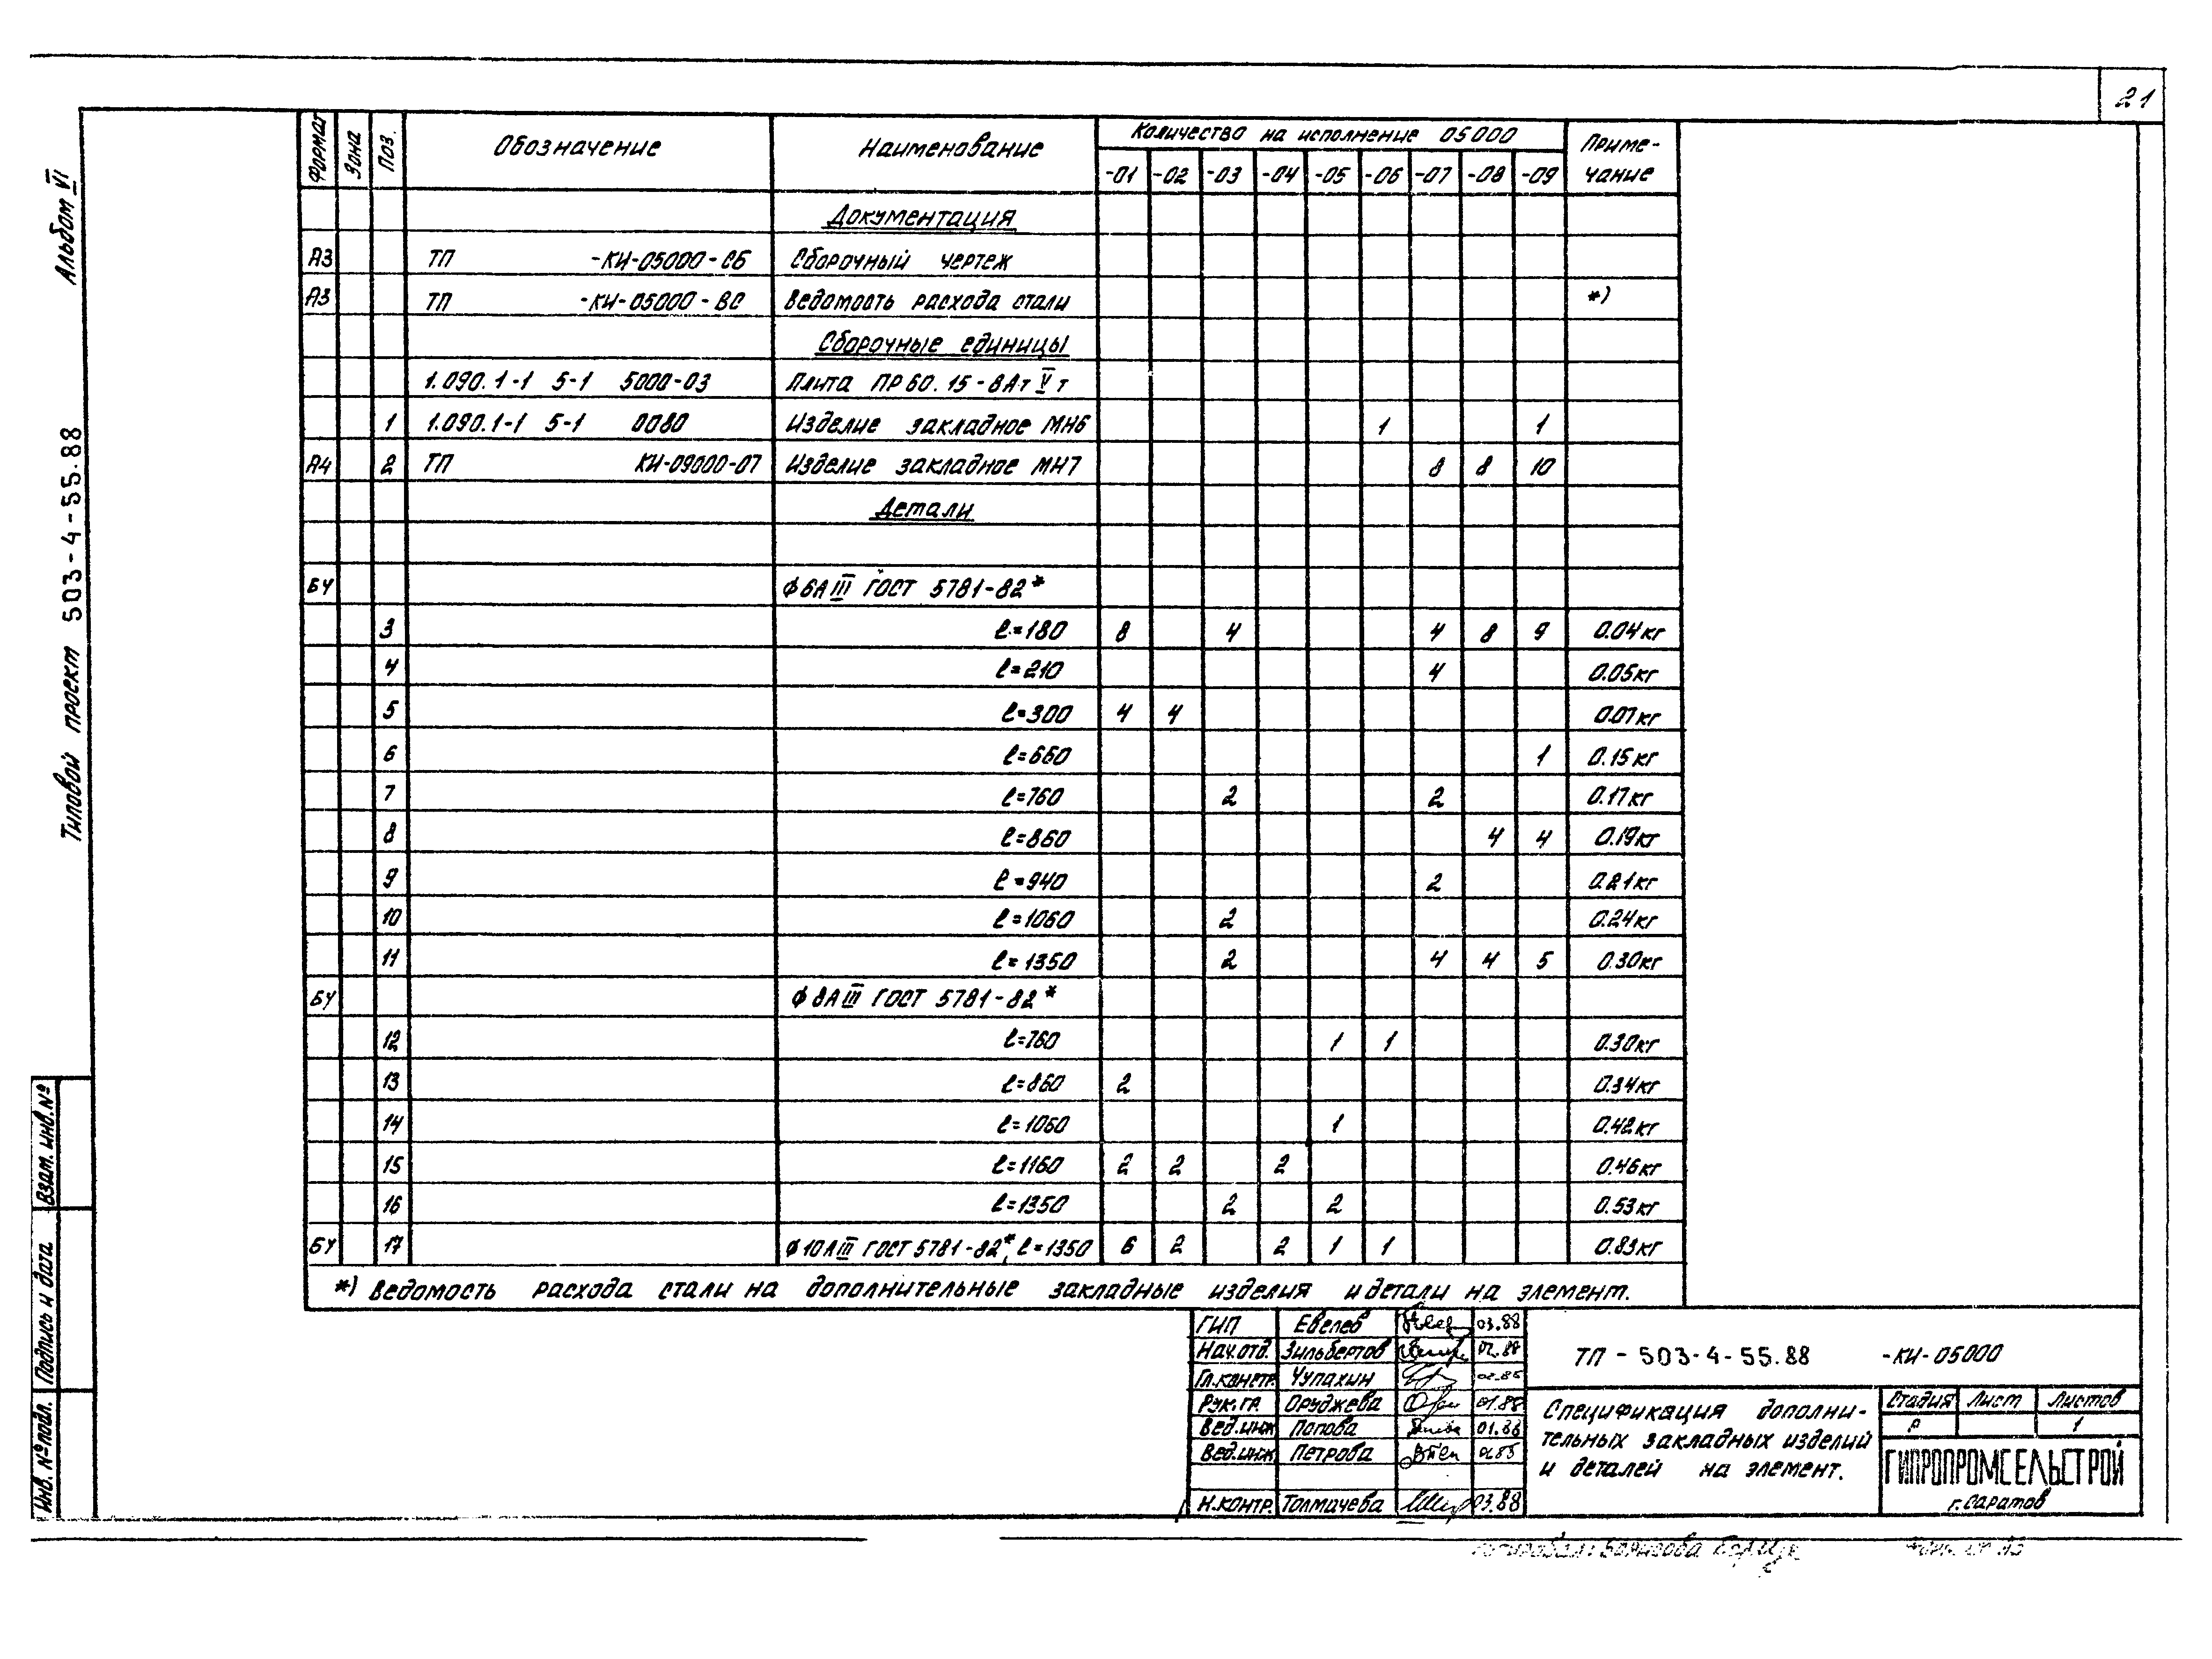 21
Альбом VI
Типовой проект 503-4-55.88
Формат Зона Поз. Обозначение Наименование Количество на исполнение 05000 Приме-
-01 -02 -03 -04 -05 -06 -07 -08 -09 чание
Документация
А3 ТП -КИ-05000-СБ Сборочный чертеж
А3 ТП -КИ-05000-ВС Ведомость расхода стали *)
Сборочные единицы
1.090.1-1 5-1 5000-03 Плита ПР60.15-8Ат V т
1 1.090.1-1 5-1 0080 Изделие закладное МН6 1 1
А4 2 ТП КИ-09000-07 Изделие закладное МН7 8 8 10
Детали
БЧ ϕ6АIII ГОСТ 5781-82*
3 ℓ=180 8 4 4 8 9 0.04кг
4 ℓ=210 4 0.05кг
5 ℓ=300 4 4 0.07кг
6 ℓ=660 1 0.15кг
7 ℓ=760 2 2 0.17кг
8 ℓ=860 4 4 0.19кг
9 ℓ=940 2 0.21кг
10 ℓ=1060 2 0.24кг
11 ℓ=1350 2 4 4 5 0.30кг
БЧ ϕ8АIII ГОСТ 5781-82*
12 ℓ=760 1 1 0.30кг
13 ℓ=860 2 0.34кг
14 ℓ=1060 1 0.42кг
15 ℓ=1160 2 2 2 0.46кг
16 ℓ=1350 2 2 0.53кг
БЧ 17 ϕ10АIII ГОСТ 5781-82*, ℓ=1350 6 2 2 1 1 0.83кг
*) Ведомость расхода стали на дополнительные закладные изделия и детали на элемент.
ГИП Евелев 03.88
Нач.отд. Зильбертов 02.88
Гл.констр. Чупахин
Рук.гр. Оруджева 01.88
Вед.инж Попова 01.88
Вед.инж Петрова
Н.контр. Толмачева 03.88
ТП-503-4-55.88 -КИ-05000
Спецификация дополни-
тельных закладных изделий
и деталей на элемент.
Стадия Лист Листов
Р 1
ГИПРОПРОМСЕЛЬСТРОЙ
г.Саратов
Взам. инв.№
Подпись и дата
Инв. №подл.